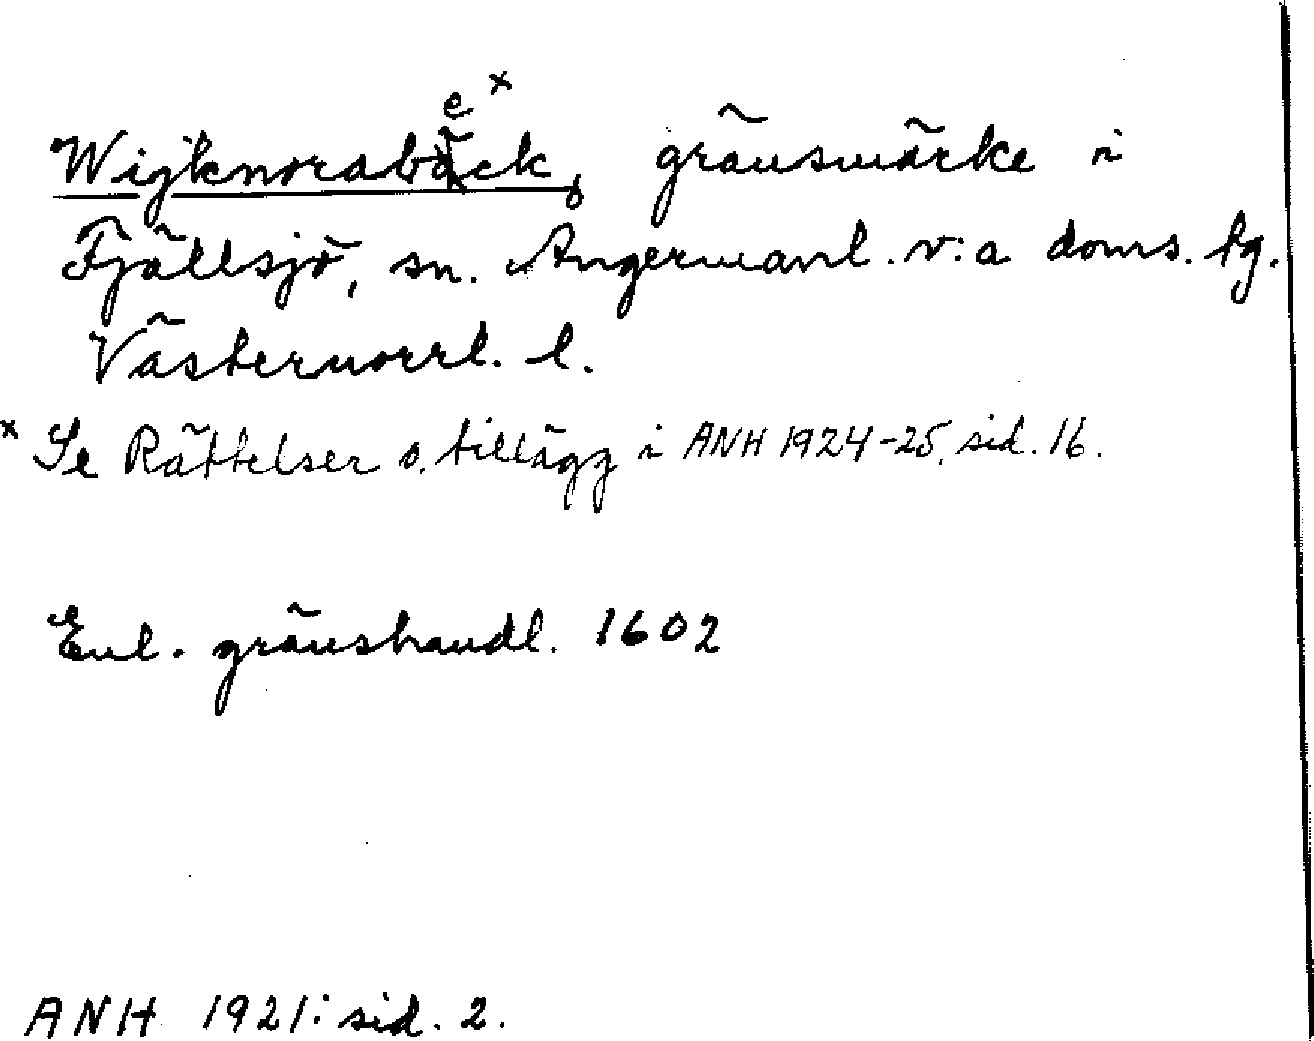 e x
Wijknorabäck, gränsmärke i
Fjällsjö, sn. Ångermanl. v:a doms. lg.
Västernorrl. l.
x Se Rättelser o. tillägg i ANH 1924-25, sid. 16.
Enl. gränshandl. 1602
ANH 1921: sid. 2.